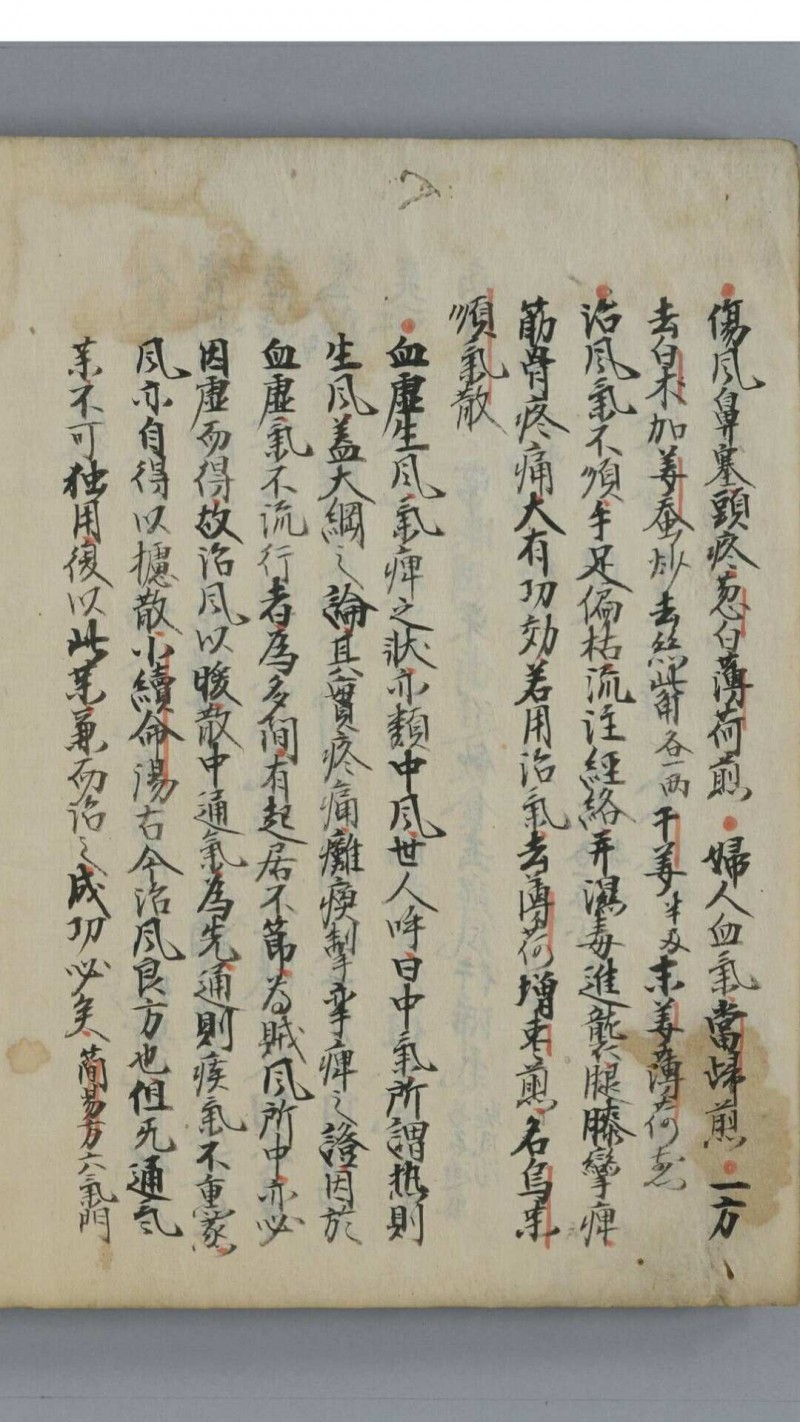 傷風鼻塞頭疼葱白薄荷煎婦人血氣當帰煎一方
去白朮加姜蚕炒去絲觜各一兩干姜半兩末姜薄荷煮
治風氣不順手足偏枯流注經絡并濕毒進襲腿膝攣痺
筋骨疼痛大有功効若用治氣去薄荷増朿煎名烏朿
順氣散
血虛生風氣痺之狀亦類中風世人呼曰中氣所謂热則
生風盖大綱之論其實疼痛癱瘓掣孿痺之證因於
血虛氣不流行者為多間有起居不節為賊風所中亦必
因虛而得故治風以暖散中通氣為先通則痰氣不重蒙
風亦自得以攄散小續命湯古今治風良方也但无通气
薬不可独用復以此薬兼而治之成功必矣 簡易方六氣門